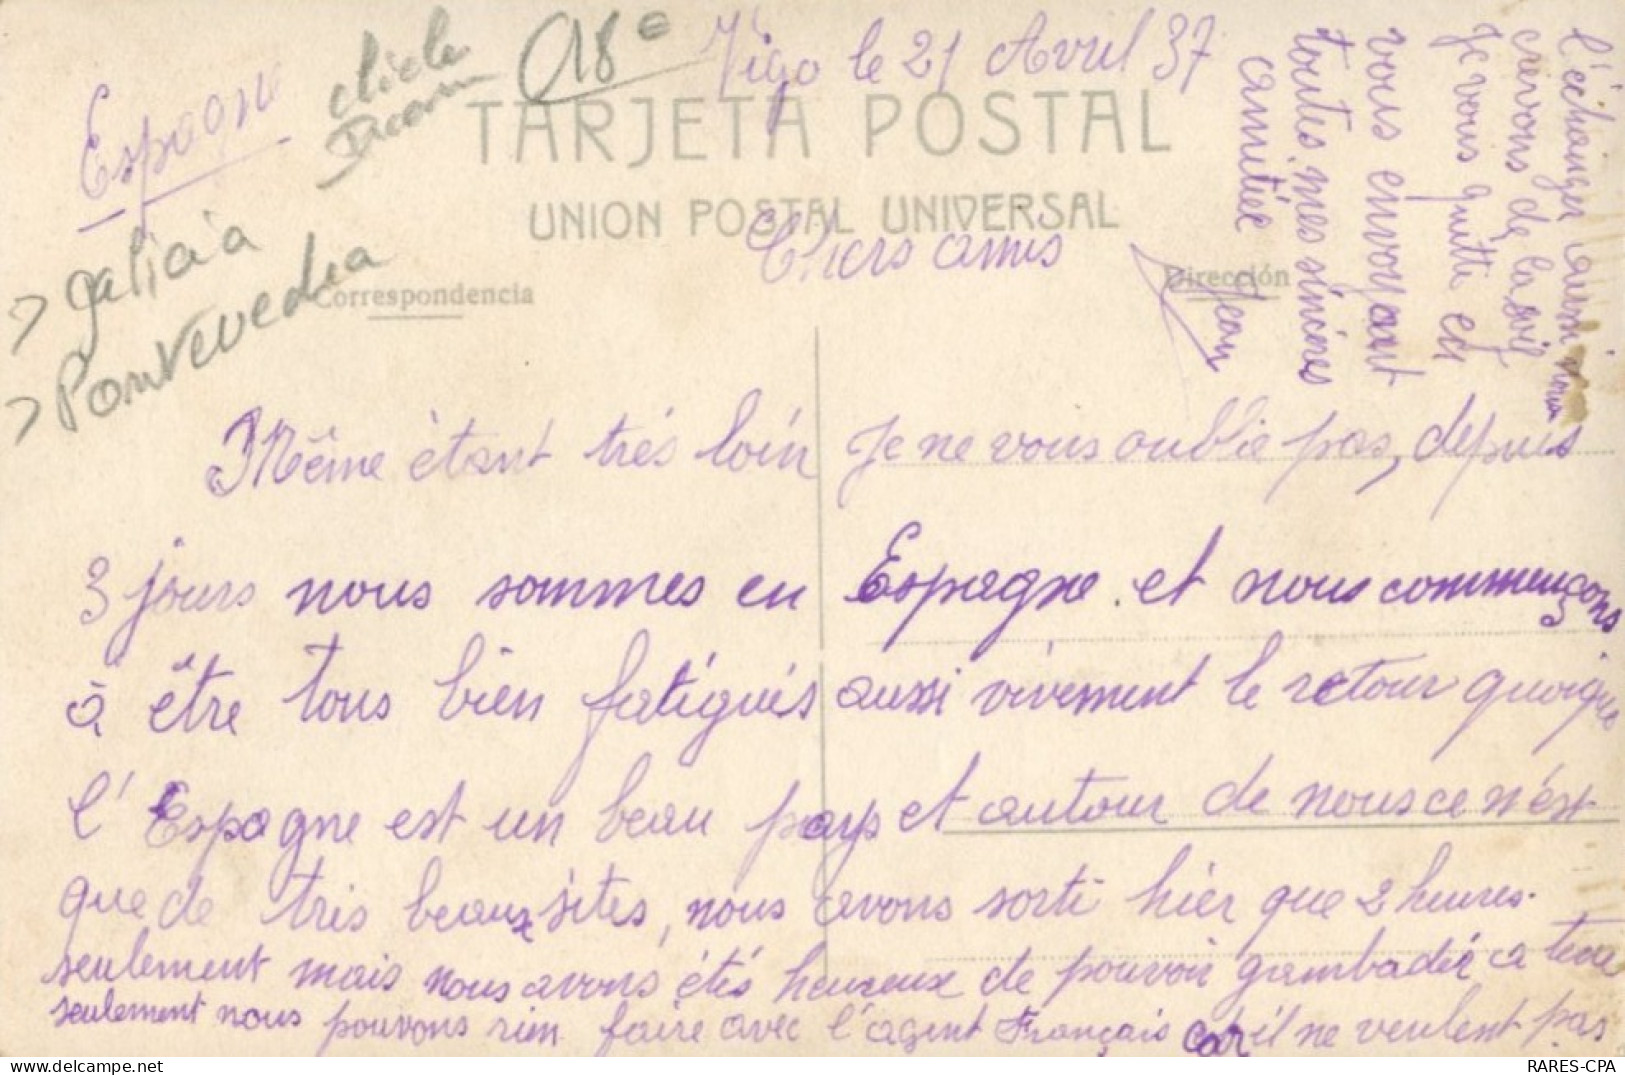 Espagne
18e
Vigo le 21 Avril 37
TARJETA POSTAL
UNION POSTAL UNIVERSAL
> galicia
> Pontevedra
Correspondencia
Dirección
Chers amis
Même étant très loin je ne vous oublie pas, depuis
3 jours nous sommes en Espagne et nous commençons
à être tous bien fatigués aussi vivement le retour quoique
l'Espagne est un beau pays et autour de nous ce n'est
que de très beaux sites, nous avons sorti hier que 2 heures.
seulement mais nous avons étés heureux de pouvoir gambader a terre
seulement nous pouvons rien faire avec l'agent Français car il ne veulent pas
l'échanger aussi nous
crevons de la soif
je vous quitte en
vous envoyant
toutes mes sincères
amitiée
Jean
RARES-CPA
delcampe.net